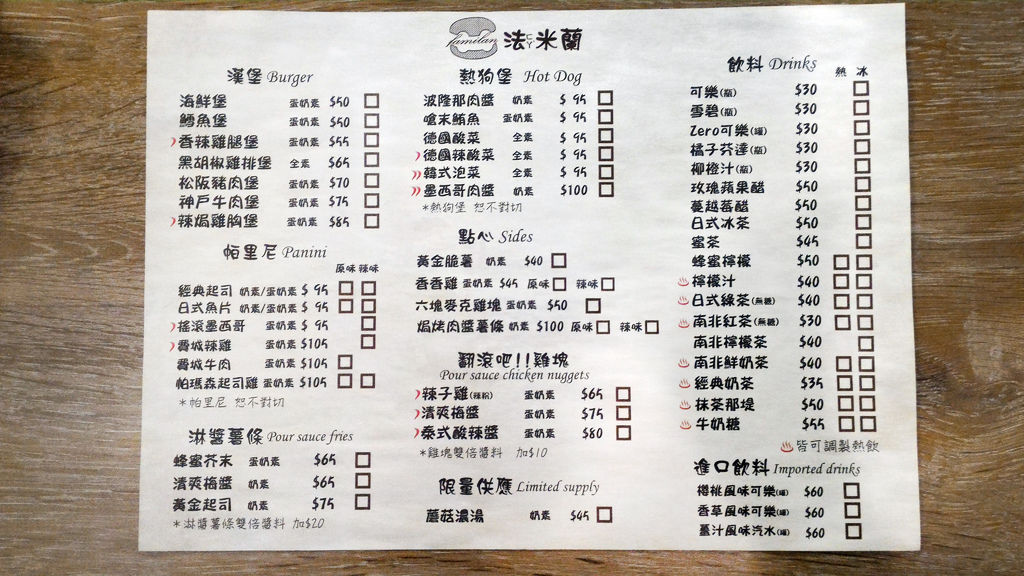 Famelan 法米蘭 CY
漢堡 Burger
海鮮堡 蛋奶素 $50
鱈魚堡 蛋奶素 $50
香辣雞腿堡 蛋奶素 $55
黑胡椒雞排堡 全素 $65
松阪豬肉堡 蛋奶素 $70
神戶牛肉堡 蛋奶素 $75
辣焗雞胸堡 蛋奶素 $85
帕里尼 Panini
原味 辣味
經典起司 奶素/蛋奶素 $ 95
日式魚片 奶素/蛋奶素 $ 95
搖滾墨西哥 蛋奶素 $ 95
費城辣雞 蛋奶素 $105
費城牛肉 蛋奶素 $105
帕瑪森起司雞 蛋奶素 $105
*帕里尼 恕不對切
淋醬薯條 Pour sauce fries
蜂蜜芥末 蛋奶素 $65
清爽梅醬 奶素 $65
黃金起司 奶素 $75
*淋醬薯條雙倍醬料 加$20
熱狗堡 Hot Dog
波隆那肉醬 奶素 $ 95
嗆末鮪魚 蛋奶素 $ 95
德國酸菜 全素 $ 95
德國辣酸菜 全素 $ 95
韓式泡菜 全素 $ 95
墨西哥肉醬 奶素 $100
*熱狗堡 恕不對切
點心 Sides
黃金脆薯 奶素 $40
香香雞 蛋奶素 $45 原味 辣味
六塊麥克雞塊 蛋奶素 $50
焗烤肉醬薯條 奶素 $100 原味 辣味
翻滾吧!!雞塊
Pour sauce chicken nuggets
辣子雞(辣粉) 蛋奶素 $65
清爽梅醬 蛋奶素 $75
泰式酸辣醬 蛋奶素 $80
*雞塊雙倍醬料 加$10
限量供應 Limited supply
蘑菇濃湯 奶素 $45
飲料 Drinks 熱 冰
可樂(瓶) $30
雪碧(瓶) $30
Zero可樂(罐) $30
橘子芬達(瓶) $30
柳橙汁(瓶) $30
玫瑰蘋果醋 $50
蔓越莓醋 $50
日式冰茶 $50
蜜茶 $45
蜂蜜檸檬 $50
檸檬汁 $40
日式綠茶(無糖) $40
南非紅茶(無糖) $30
南非檸檬茶 $40
南非鮮奶茶 $40
經典奶茶 $35
抹茶那堤 $50
牛奶糖 $55
皆可調製熱飲
進口飲料 Imported drinks
櫻桃風味可樂(罐) $60
香草風味可樂(罐) $60
薑汁風味汽水(罐) $60